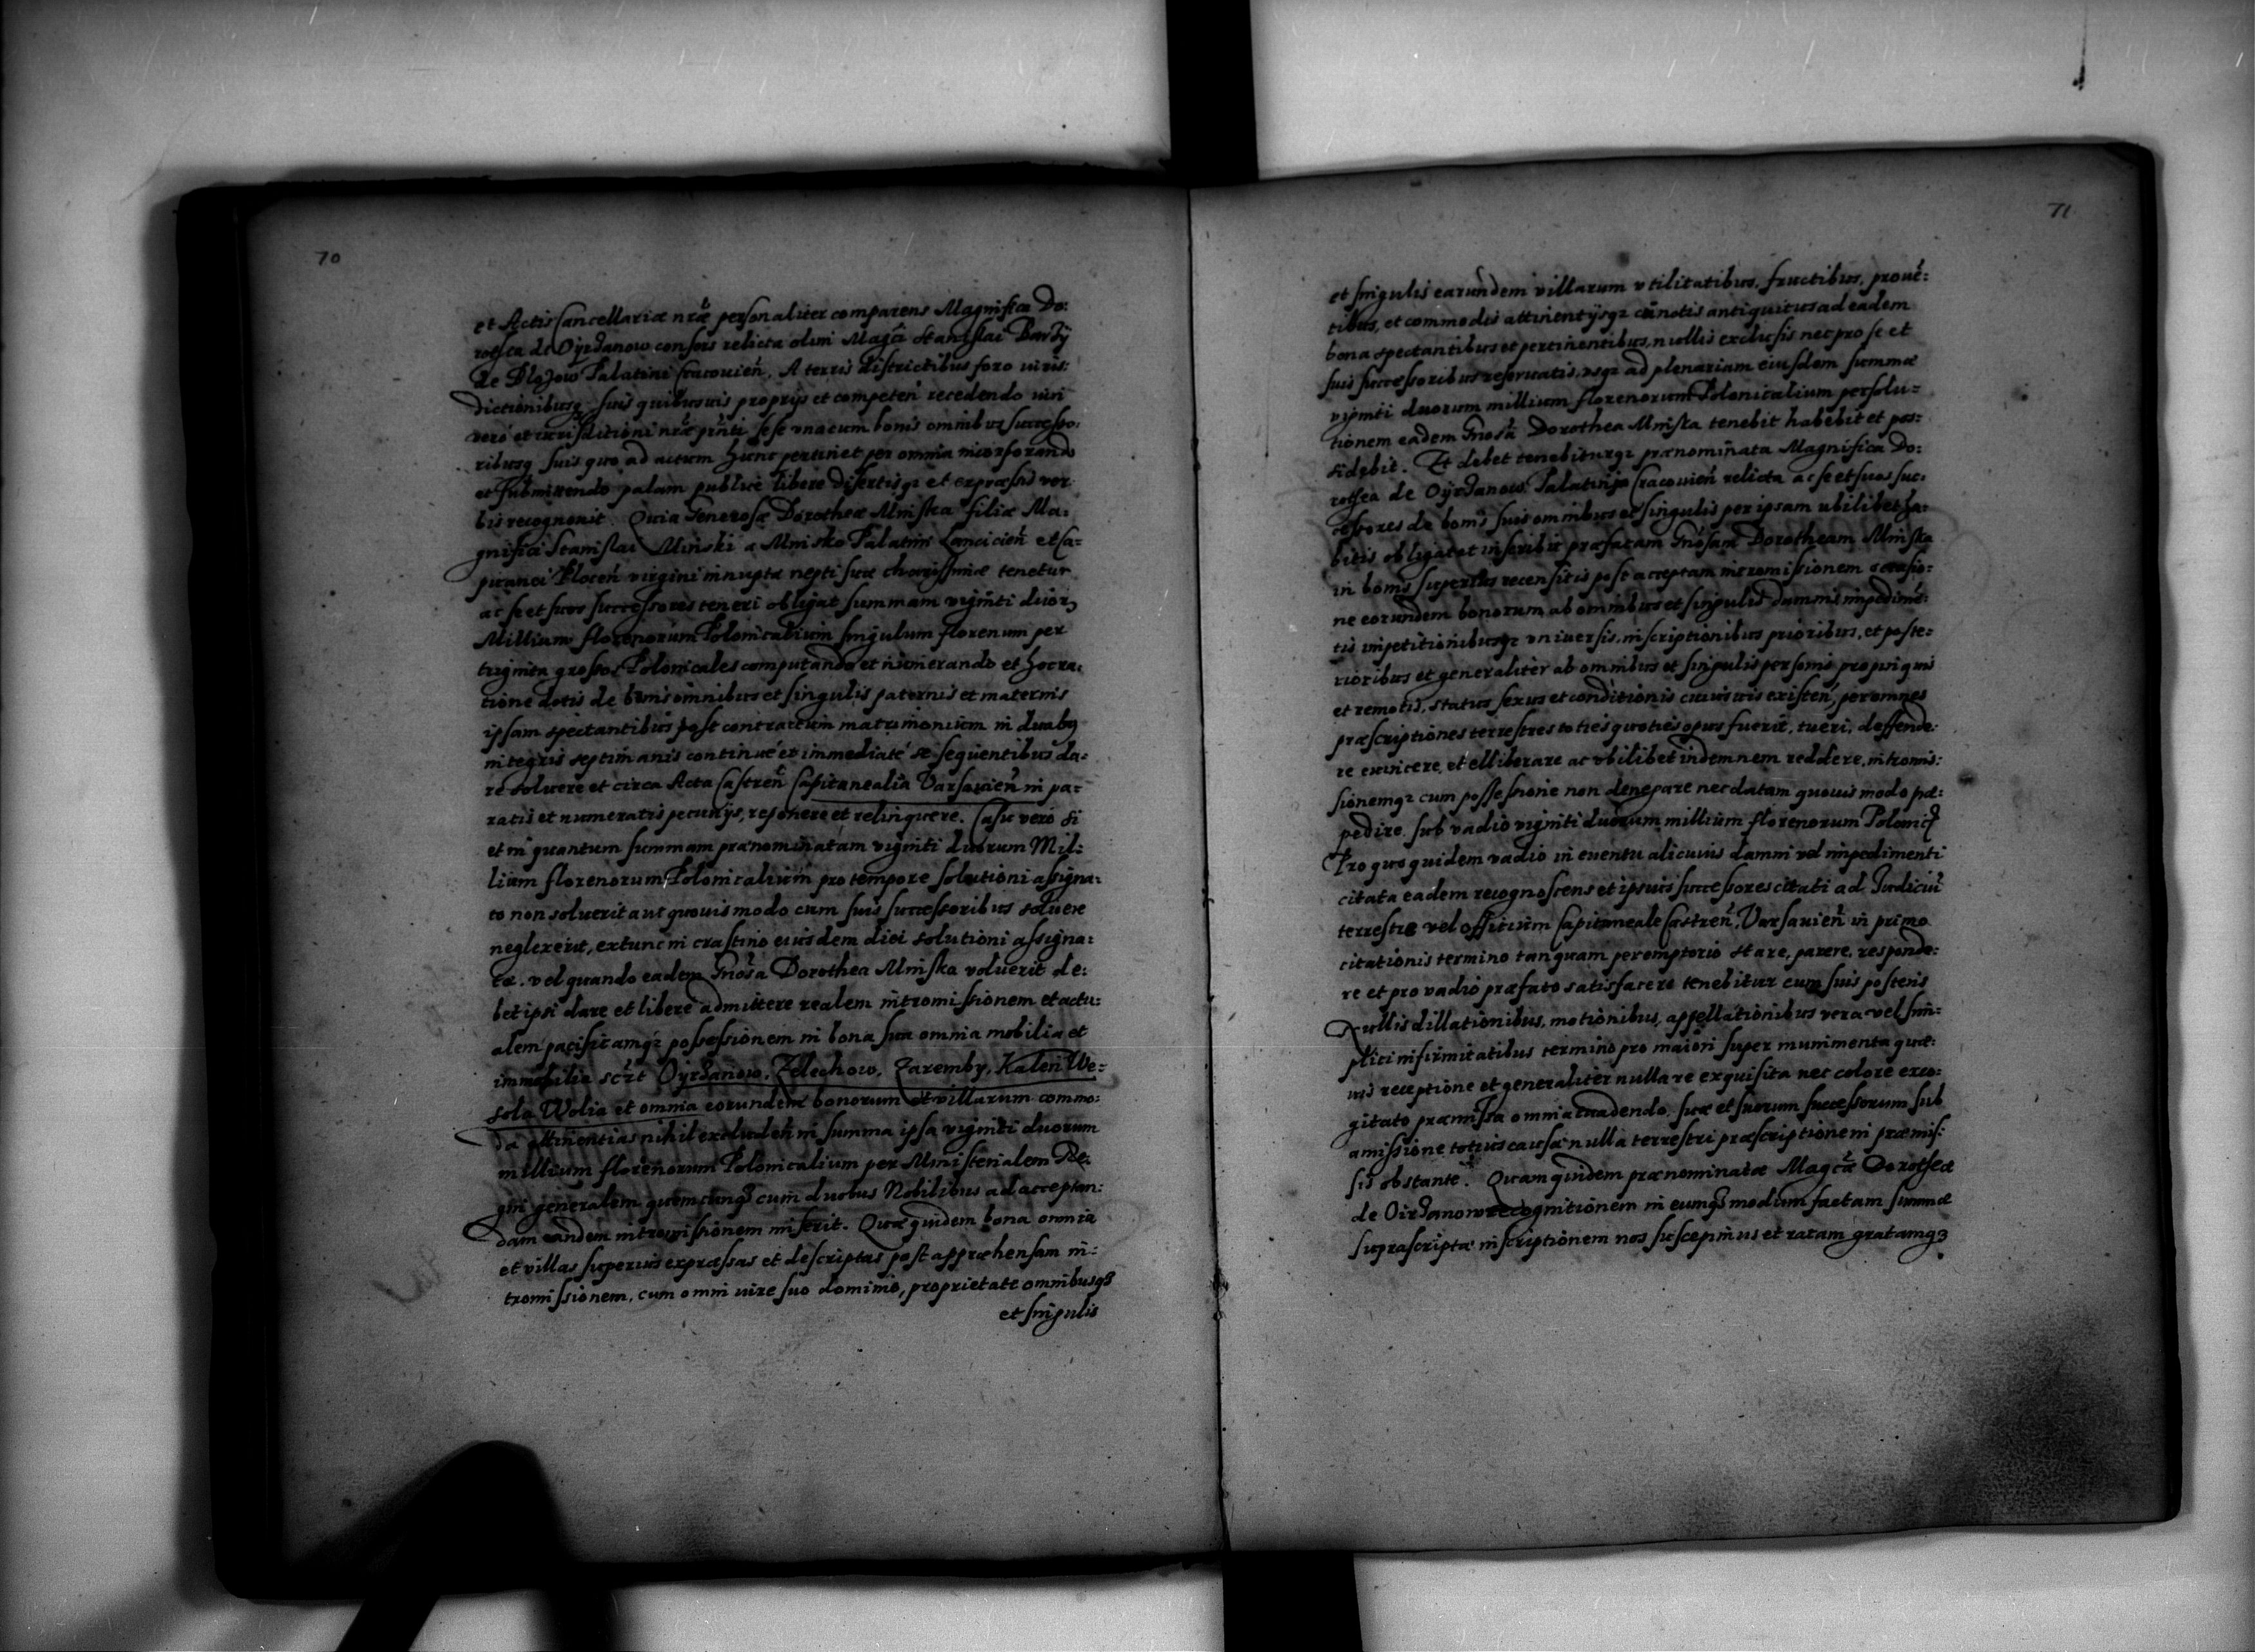 70
et Actis Cancellariæ nr̃æ personaliter comparens Magnifica Do:
rothea de Oyrzanow consors relicta olim Magci Stanislai Barzÿ
de Blozow Palatini Cracouień, A terris districtibus foro iuris:
dictionibusq suis quibusuis proprijs et competeń recedendo iuri
vero et iurisditioni nr̃æ pr̃nti sese vnacum bonis omnibus successo:
ribusq suis quo ad actum hunc pertinet per omnia incorporando
et submittendo palam publice libere disertisqz et expræssis ver
bis recognouit. Quia Generosæ Dorotheæ Minska filiæ Ma:
gnifici Stanislai Minski a Minsko Palatini Lancicień et Ca=
pitanei Ploceń virgini innuptæ nepti suæ charissimæ tenetur
ac se et suos successores teneri obligat summam viginti duorz
Millium florenorum Polonicalium singulum florenum per
triginta grossos Polonicales computando et numerando et hoc ra:
tione dotis de bonis omnibus et singulis paternis et maternis
ipsam spectantibus post contractum matrimonium in duabq
integris septimanis continué et immediaté se sequentibus da:
re soluere et circa Acta Castreń Capitanealia Varsouień in pa:
ratis et numeratis pecunijs, reponere et relinquere. Casu vero si
et in quantum summam prænominatam viginti duorum Mil:
lium florenorum Polonicalium pro tempore solutioni assigna:
to non soluerit aut quouis modo cum suis successoribus soluere
neglexerit, extunc in crastino eiusdem diei solutioni assigna:
tæ. vel quando eadem Gnosa Dorothea Minska voluerit de:
bet ipsi dare et libere admittere realem intromissionem et actu:
alem pacificamqz possessionem in bona sua omnia mobilia et
immobilia sczt Oyrzanow, Zelechow, Zaremby, Kalen We:
sola Wolia et omnia eorundem bonorum et villarum commo:
da attinentias nihil excludeń in summa ipsa viginti duorum
millium florenorum Polonicalium per Ministerialem Re:
gni generalem quemcunqz cum duobus Nobilibus ad acceptan:
dam eandem intromissionem miserit. Quæ quidem bona omnia
et villas superius expræssas et descriptas post appræhensam in:
tromissionem, cum omni iure suo dominio, proprietate omnibusqz
et singulis
71
et singulis earundem villarum vtilitatibus, fructibus, prouē:
tibus, et commodis attinentijsqz cunctis antiquitus ad eadem
bona spectantibus et pertinentibus, nullis exclusis nec pro se et
suis successoribus reseruatis, vsqz ad plenariam eiusdem summæ
viginti duorum millium florenorum Polonicalium persolu=
tionem eadem Gnosa Dorothea Minska tenebit habebit et pos:
sidebit. Et debet tenebiturqz prænominata Magnifica Do:
rothea de Oyrzanow Palatinja Cracouień relicta ac se et suos suc:
cessores de bonis suis omnibus et singulis per ipsam ubilibet ha:
bitis obligat et inscribit præfatam Gnosam Dorotheam Minska
in bonis superius recensitis post acceptam intromissionem occasio:
ne eorundem bonorum ab omnibus et singulis damnis impedimē:
tis impetitionibusqz vniuersis, inscriptionibus prioribus, et poste:
rioribus et generaliter ab omnibus et singulis personis propinquis
et remotis, status sexus et conditionis cuiusuis existeń, per omnes
præscriptiones terrestres toties quoties opus fuerit, tueri, deffende:
re euincere, et elliberare ac vbilibet indemnem reddere, intromis:
sionemqz cum possessione non denegare nec datam quouis modo præ:
pedire. sub vadio viginti duorum millium florenorum Polonicq
Pro quo quidem vadio in euentu alicuius damni vel impedimenti
citata eadem recognoscens et ipsius successores citati ad Iudiciū
terrestre vel officium Capitaneale Castreń, Varsauień in primo
citationis termino tanquam peremptorio stare, parere, responde:
re et pro vadio præfato satisfacere tenebitur cum suis posteris
Nullis dillationibus, motionibus, appellationibus vera vel sim:
plici infirmitatibus termino pro maiori super munimenta quæ:
uis receptione et generaliter nulla re exquisita nec colore exco:
gitato præmissa omnia euadendo, suæ et suorum successorum sub
amissione totius causæ nulla terrestri præscriptione in præmis:
sis obstante. Quam quidem prænominatæ Magcæ Dorotheæ
de Oirzanow recognitionem in eumqz modum factam summæ
suprascriptæ inscriptionem nos suscepimus et ratam gratamqz